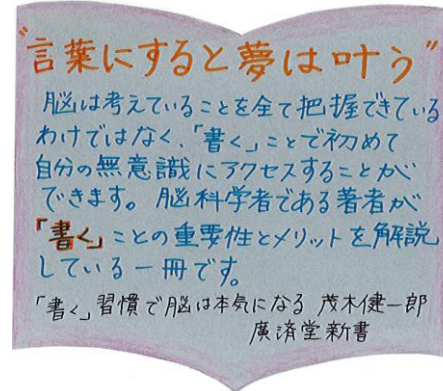 "言葉にすると夢は叶う"
脳は考えていることを全て把握できている
わけではなく、「書く」ことで初めて
自分の無意識にアクセスすることが
できます。脳科学者である著者が
「書く」ことの重要性とメリットを解説
している一冊です。
「書く」習慣で脳は本気になる 茂木健一郎
廣済堂新書